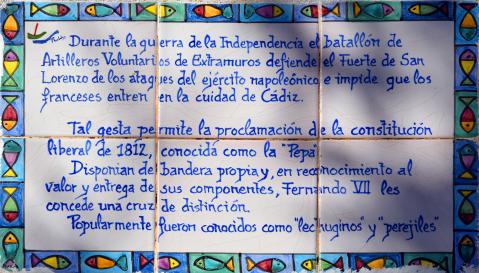 Durante la guerra de la Independencia el batallón de
Artilleros Voluntarios de Extramuros defiende el Fuerte de San
Lorenzo de los ataques del ejército napoleónico e impide que los
franceses entren en la cuidad de Cádiz.
Tal gesta permite la proclamación de la constitución
liberal de 1812, conocida como la "Pepa".
Disponían de bandera propia y, en reconocimiento al
valor y entrega de sus componentes, Fernando VII les
concede una cruz de distinción.
Popularmente fueron conocidos como "lechuginos" y "perejiles"